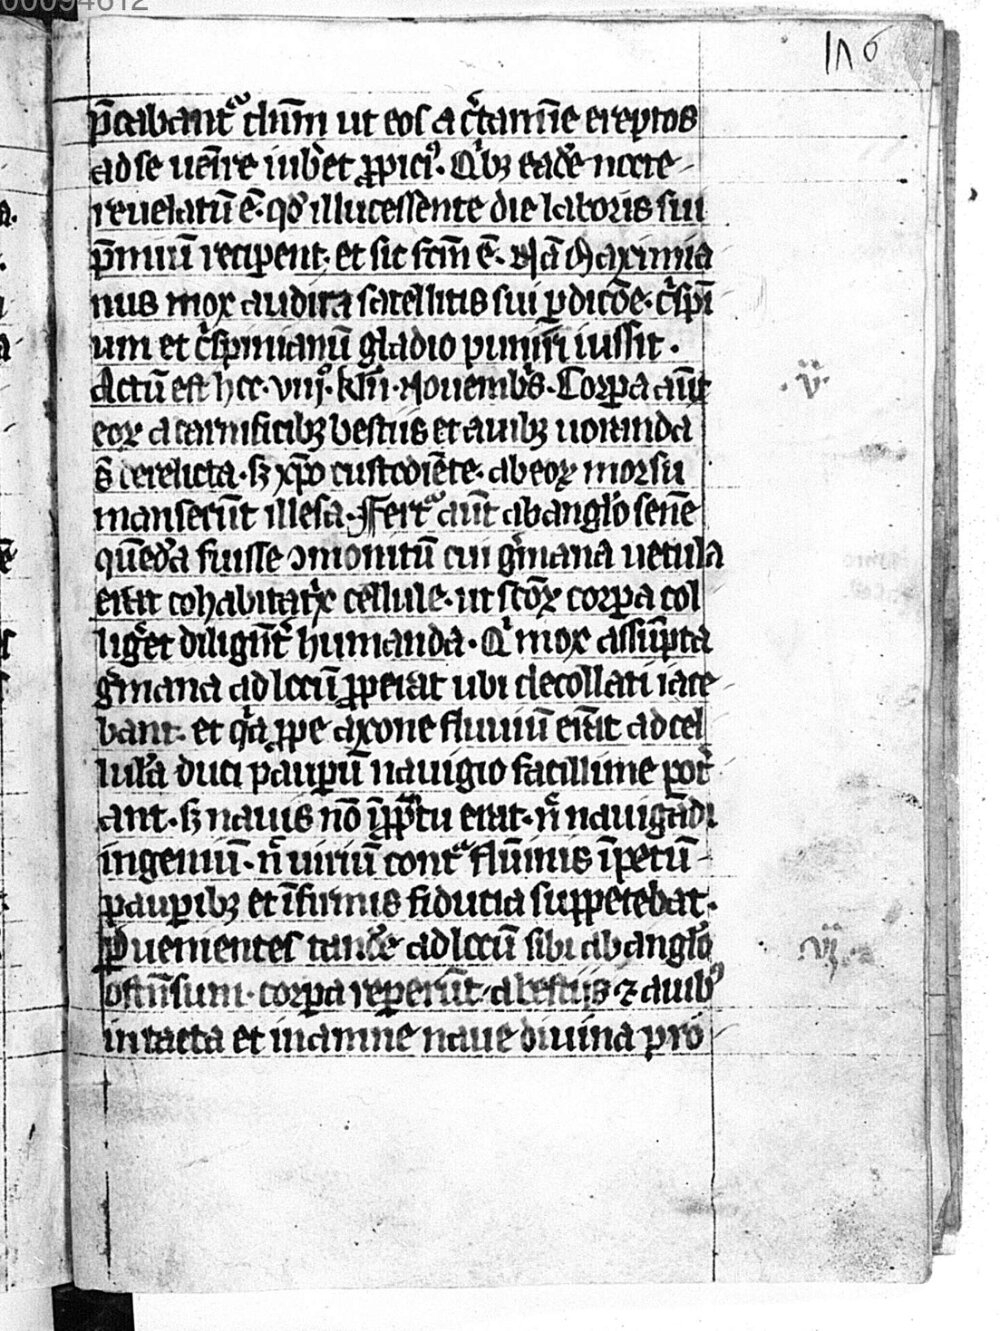 00094612
p̄cabantᷓ dn̄m ut eos a c̾tamīe ereptos
ad se uenīre iub̾et ꝓpici᷒. Qͥbꝫ eadē nocte
reuelatū ē. qd̾ illucessente die laboris sui
p̄miū recipent. et sic fc̄m ē. Nā Maximia
nus mox audita satellitis sui ꝑdicōe. c̾spī
um et c̾spinianū gladio puniri iussit.
Actū est hoc. viij. kl̄n. Nouembrͥs. Corꝑa aūt
eoꝝ a carnificibꝫ bestiis et auibꝫ uoranda
s̄ derelicta. sꝫ xp̄o custodiēte. ab eoꝝ morsu
manserūt illesa. Ffertᷓ aūt ab anglo senē
quēdā fuisse ꝯmonitū cui g̾mana uetula
erat cohabitatͥx cellule. ut sc̄oꝝ corꝑa col
lig̾et diligēt̾ humanda. Qͥ mox assūpta
g̾mana ad locū ꝓperat ubi decollati iace
bant. et qᷓa ꝓpe axone fluuiū erāt ad cel
lulā duci pauꝑū nauigio facillime pot̾
ant. sꝫ nauis nō ī ꝓptu erat. nͨ nauigādi
ingeniū. nͨ uiriū contᷓ flūmis īpetū
pauꝑibꝫ et īfirmis fiducia suppetebat.
Ꝑuenientes tandē ad locū sibi ab anglo
ostensum. corꝑa repperūt. a bestijs ⁊ auibꝰ
intacta et inamne naue diuina pro
.v̈.
.vij.